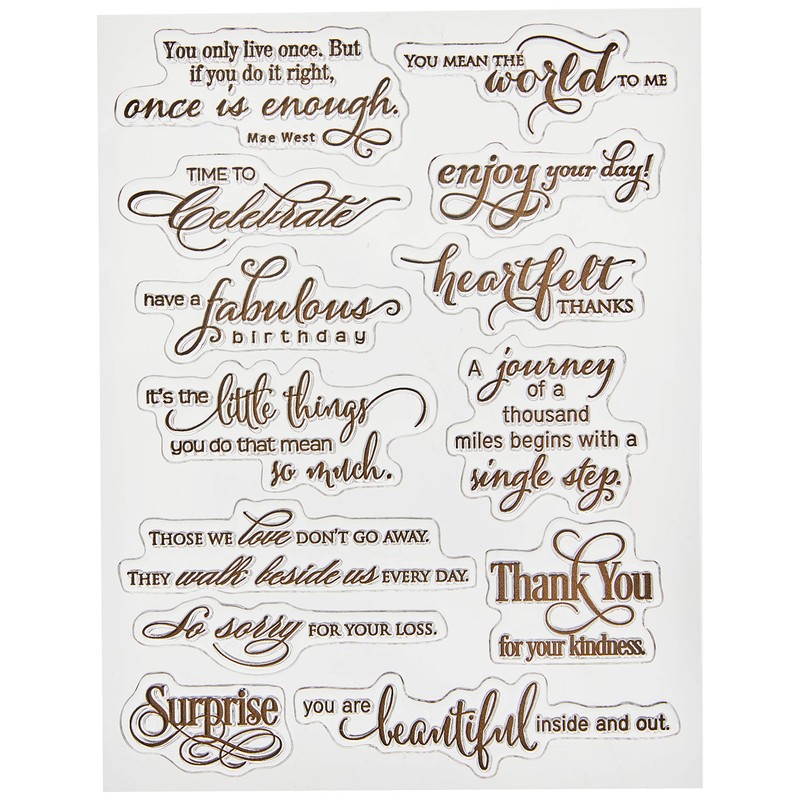 You only live once. But
if you do it right,
once is enough.
Mae West
YOU MEAN THE world TO ME
TIME TO
Celebrate
enjoy your day!
have a fabulous
birthday
heartfelt
THANKS
It's the little things
you do that mean
so much.
A journey
of a
thousand
miles begins with a
single step.
THOSE WE love DON'T GO AWAY.
THEY walk beside us EVERY DAY.
So sorry FOR YOUR LOSS.
Thank You
for your kindness.
Surprise
you are beautiful inside and out.